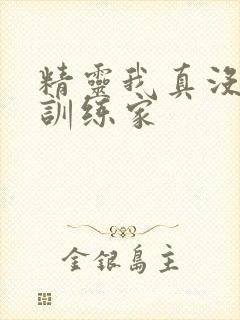 精靈我真沒
訓练家
金銀島主